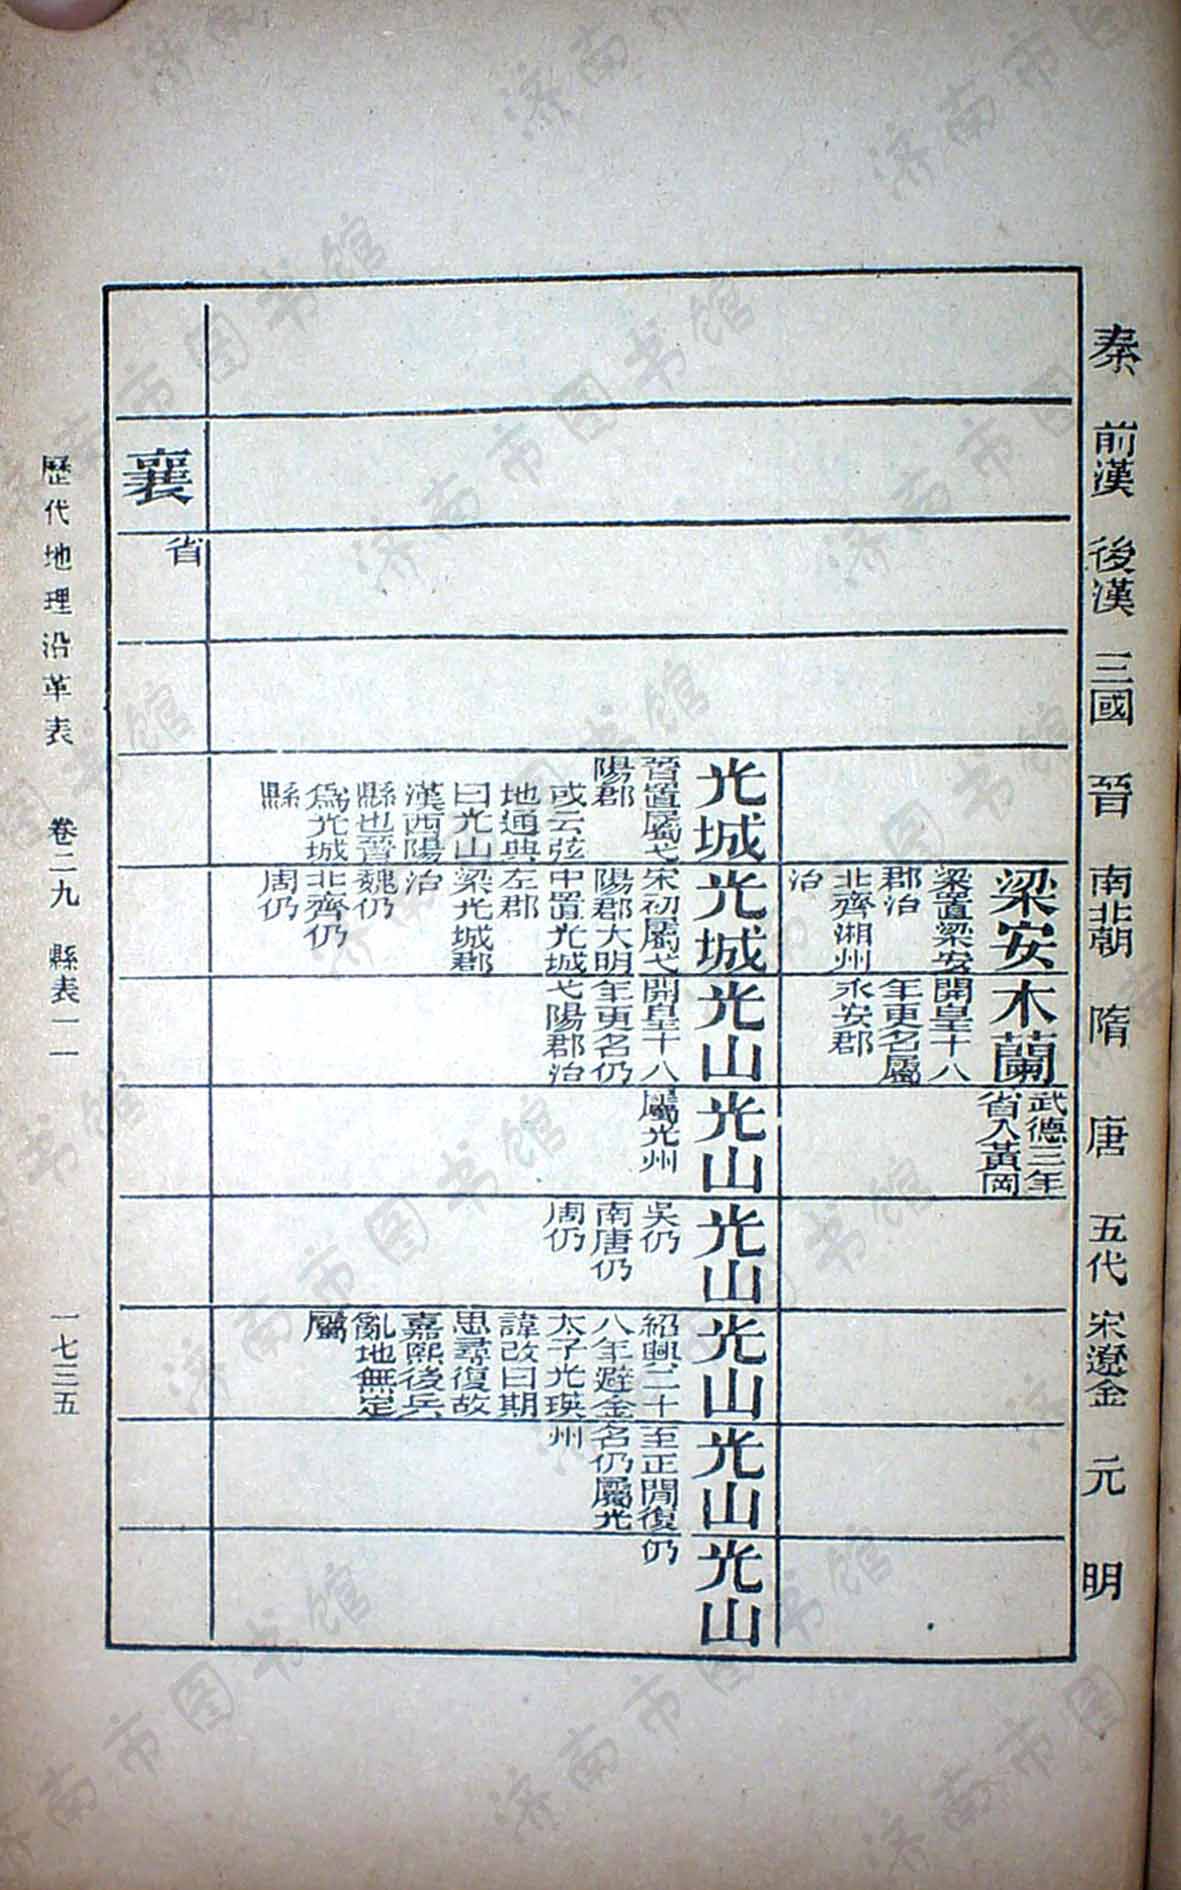 秦
前漢
後漢
三國
晉
南北朝
隋
唐
五代
宋遼金
元
明
梁安
梁置梁安
郡治
北齊湘州
治
木蘭
開皇十八
年更名屬
永安郡
武德三年
省入黃岡
光城
晉置屬弋
陽郡
或云弦
地通典
曰光山
漢西陽
縣也晉
爲光城
縣
光城
宋初屬弋
陽郡大明
中置光城
左郡
梁光城郡
治
魏仍
北齊仍
周仍
光山
開皇十八
年更名仍
弋陽郡治
光山
屬光州
光山
吳仍
南唐仍
周仍
光山
紹興二十
八年避金
太子光瑛
諱改曰期
思尋復故
嘉熙後兵
亂地無定
屬
光山
至正閒復
名仍屬光
州
光山
仍
襄
省
歷代地理沿革表 卷二九 縣表一一 一七三五
济南市图书馆